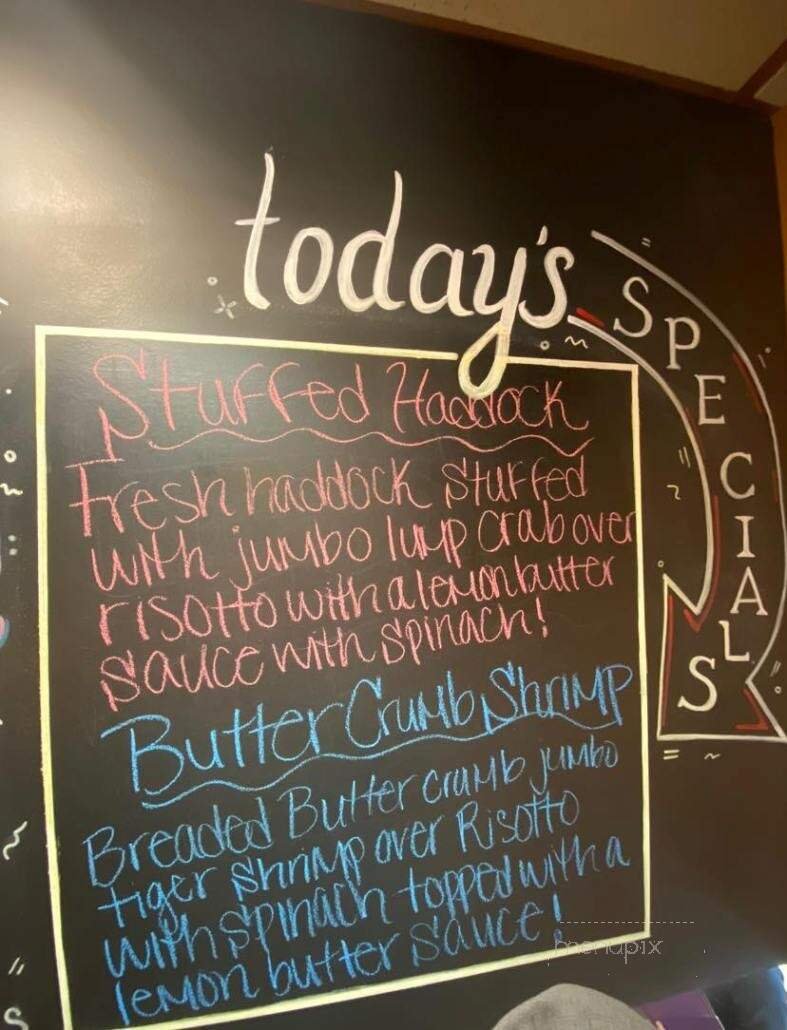 today's
SPECIALS
Stuffed Haddock
Fresh haddock stuffed
with jumbo lump crab over
risotto with a lemon butter
sauce with spinach!
Butter Crumb Shrimp
Breaded Butter crumb jumbo
tiger shrimp over Risotto
with spinach topped with a
lemon butter sauce!
menupix